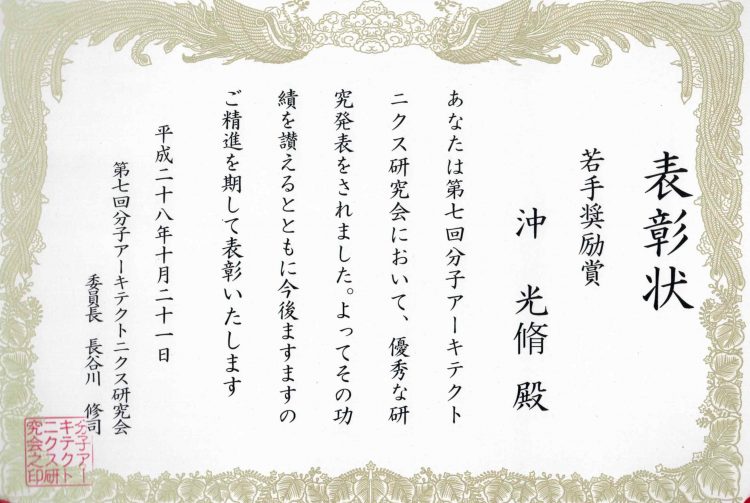 表彰状
若手奨励賞
沖 光脩 殿
あなたは第七回分子アーキテクト
ニクス研究会において、優秀な研
究発表をされました。よってその功
績を讃えるとともに今後ますますの
ご精進を期して表彰いたします
平成二十八年十月二十一日
第七回分子アーキテクトニクス研究会
委員長 長谷川 修司
分子アー
キテクト
ニクス研
究会之印